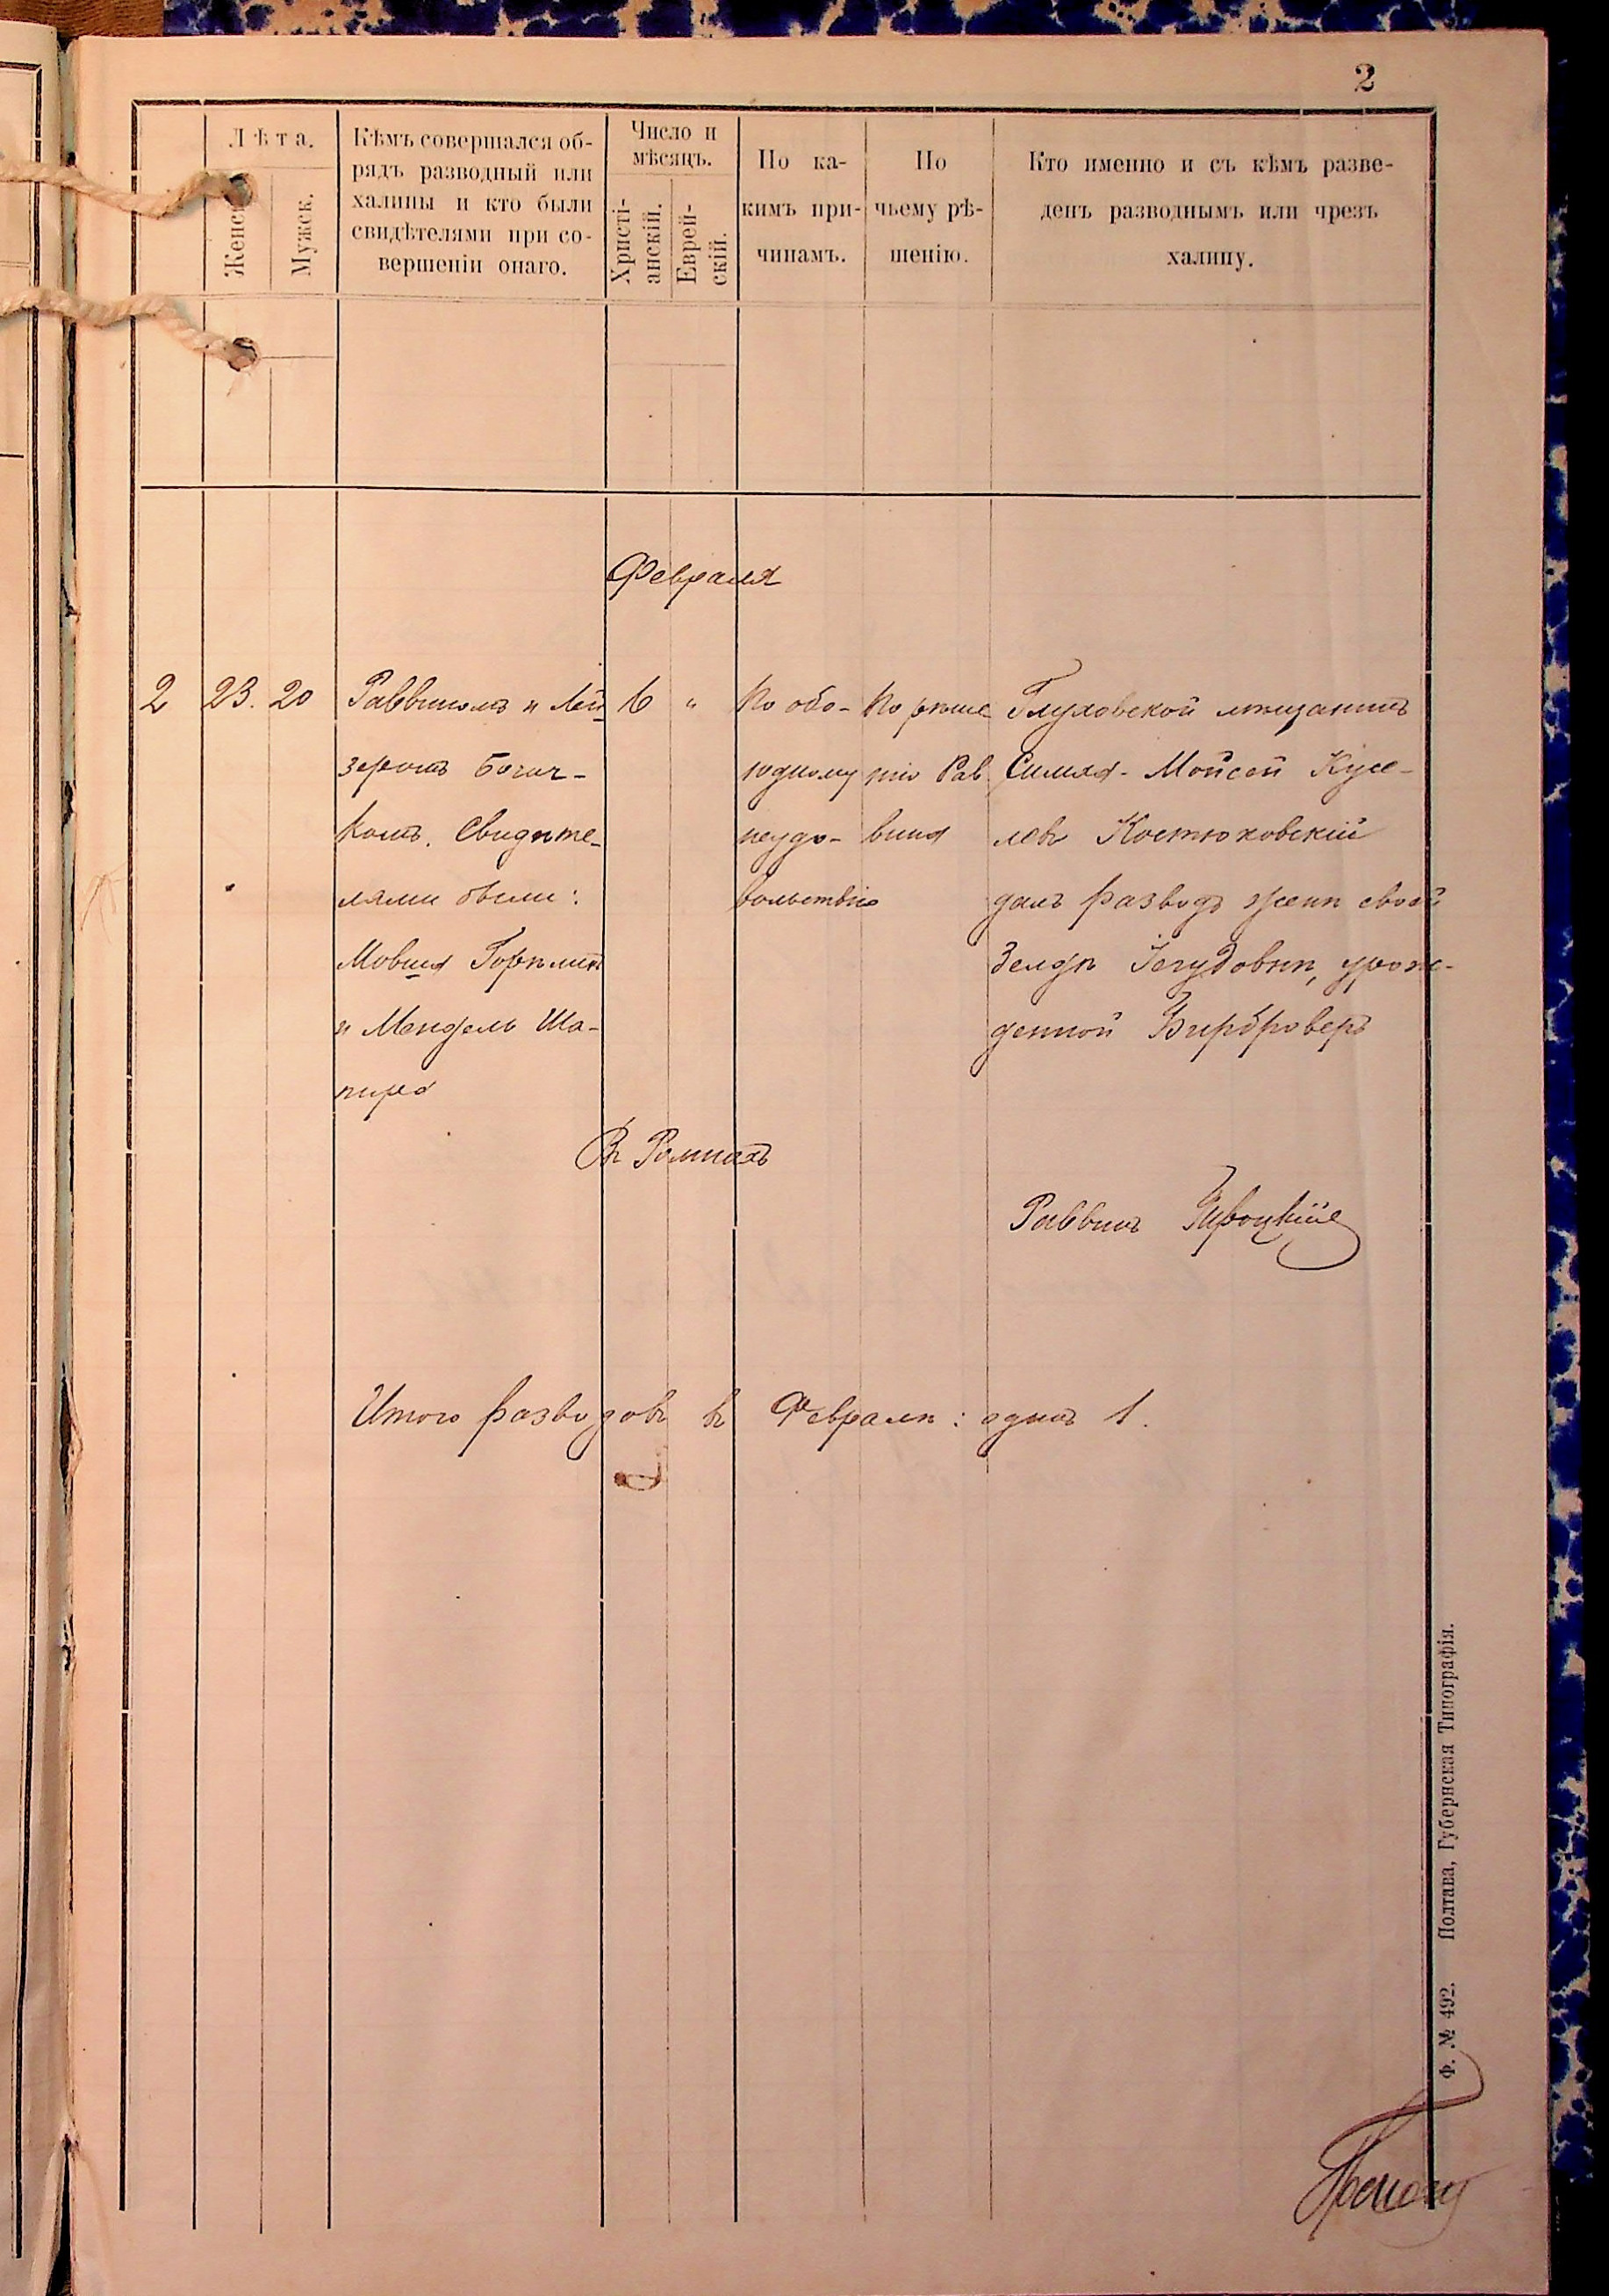 2
Лѣта.
Женск.
Мужск.
Кѣмъ совершался об-
рядъ разводный или
халицы и кто были
свидѣтелями при со-
вершеніи онаго.
Число и
мѣсяцъ.
Христі-
анскій.
Еврей-
скій.
По ка-
кимъ при-
чинамъ.
По
чьему рѣ-
шенію.
Кто именно и съ кѣмъ разве-
денъ разводнымъ или чрезъ
халицу.
Февраля
2
23.
20
Раввиномъ и Лей
зеромъ
комъ. Свидѣте-
лями были:
Мовша Горѣликъ
и Мендель Ша-
пиро
"
По обо-
юдному
неудо-
вольствію
По рѣше
нію Рав
вина
Глуховской мѣщанинъ
Симха-Мойсей Кусе-
левъ Костюковскій
далъ разводъ женѣ своей
Зелдѣ Іегудовнѣ, урож-
денной
Въ Ромнахъ
Раввинъ
Итого разводовъ въ Февралѣ: одинъ 1.
Ф. № 492. Полтава, Губернская Типографія.